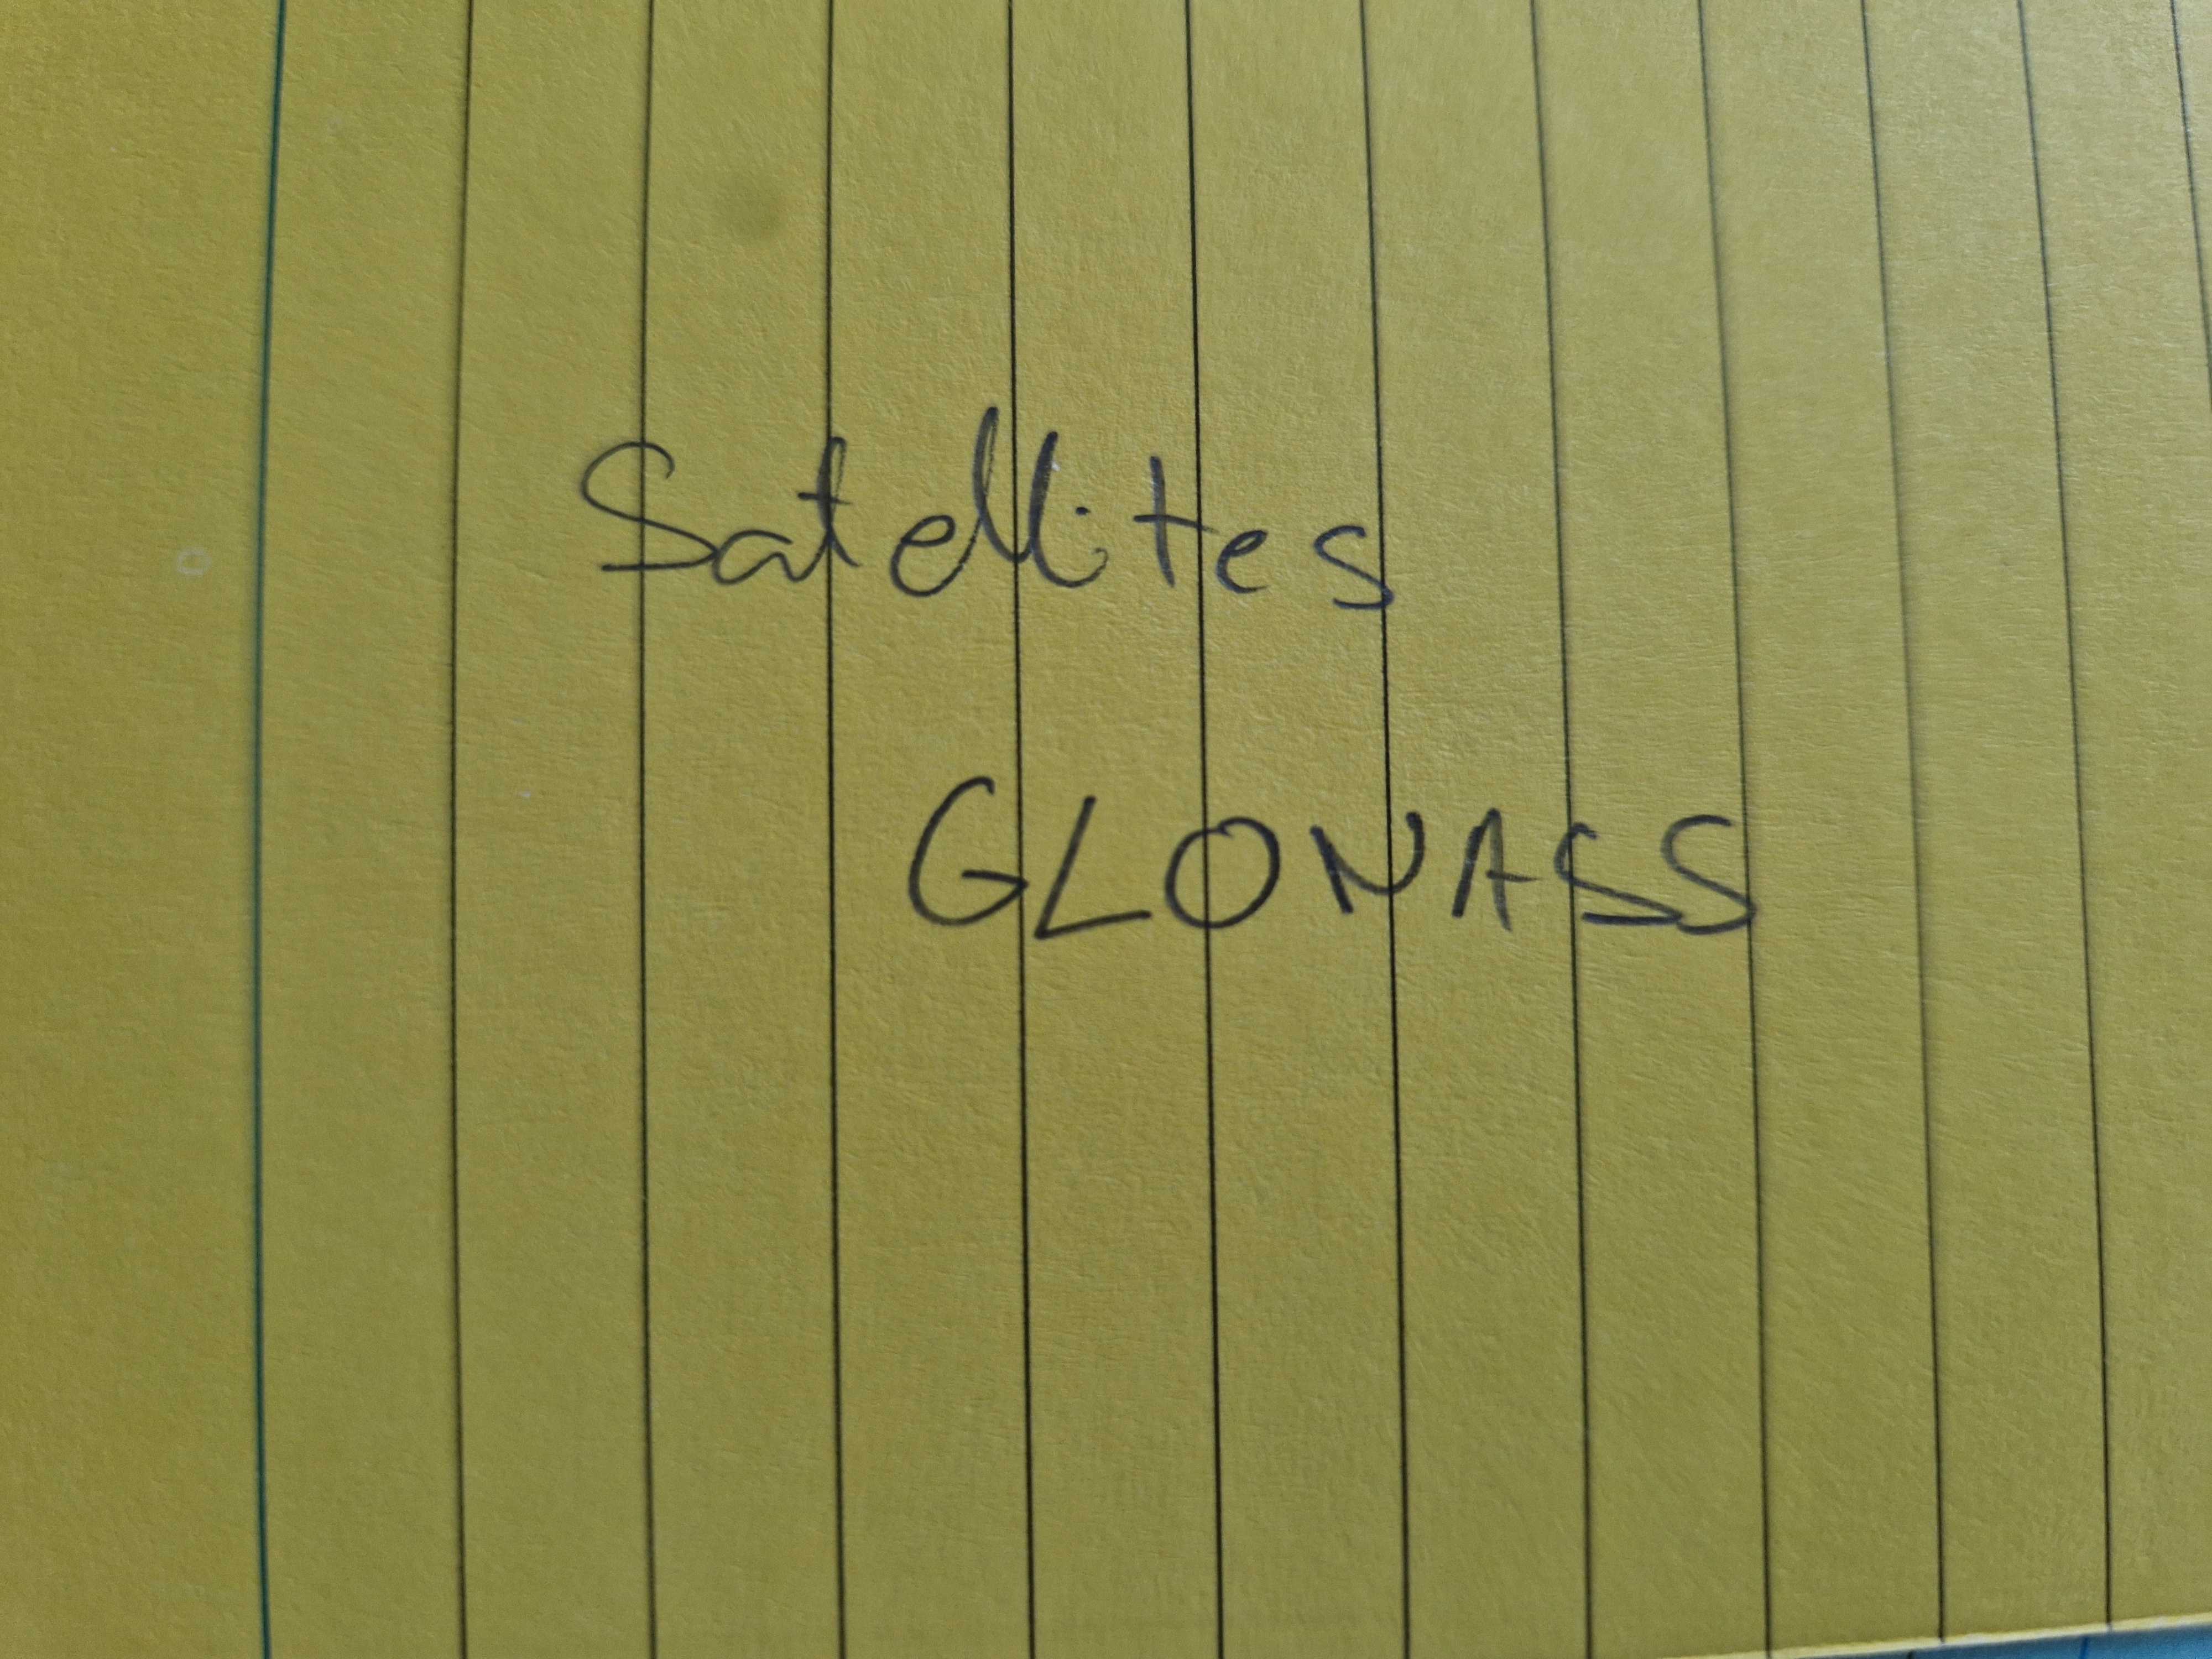 Satellites
GLONASS